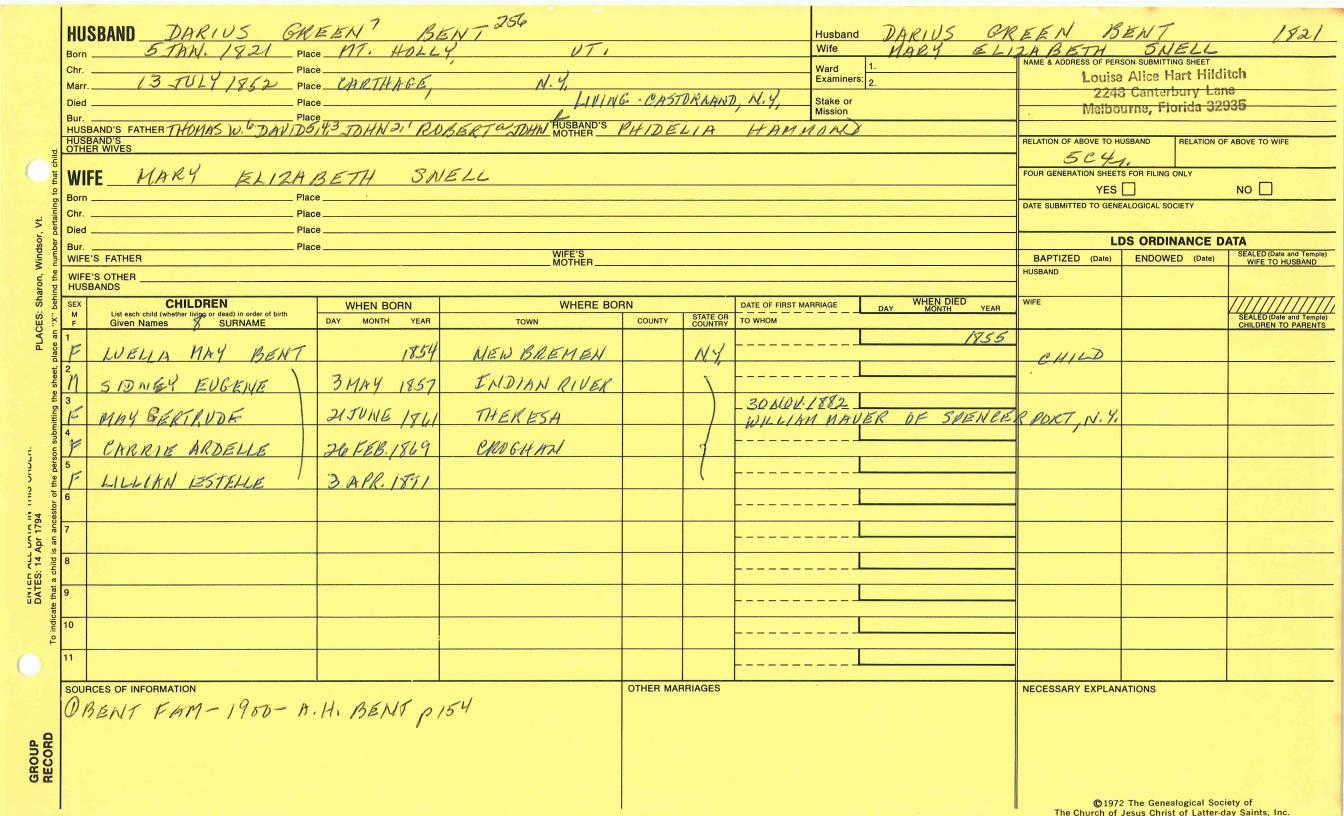 HUSBAND DARIUS GREEN 7 BENT 256
Born 5 JAN. 1821 Place MT. HOLLY, VT.
Chr. Place
Marr. 13 JULY 1852 Place CARTHAGE, N.Y.
Died Place LIVING - CASTORNAND, N.Y.
Bur. Place
HUSBAND'S FATHER THOMAS W. 6 DAVID 5,4,3 JOHN 2, 1 ROBERT a JOHN HUSBAND'S MOTHER PHIDELIA HAMMOND
HUSBAND'S OTHER WIVES
Husband DARIUS GREEN BENT 1821
Wife MARY ELIZABETH SNELL
Ward Examiners: 1. 2.
Stake or Mission
NAME & ADDRESS OF PERSON SUBMITTING SHEET
Louise Alice Hart Hilditch
2248 Canterbury Lane
Melbourne, Florida 32935
RELATION OF ABOVE TO HUSBAND RELATION OF ABOVE TO WIFE
5C4r.
FOUR GENERATION SHEETS FOR FILING ONLY
YES NO
DATE SUBMITTED TO GENEALOGICAL SOCIETY
WIFE MARY ELIZABETH SNELL
Born Place
Chr. Place
Died Place
Bur. Place
WIFE'S FATHER WIFE'S MOTHER
WIFE'S OTHER HUSBANDS
LDS ORDINANCE DATA
BAPTIZED (Date) ENDOWED (Date) SEALED (Date and Temple) WIFE TO HUSBAND
HUSBAND
WIFE
SEALED (Date and Temple) CHILDREN TO PARENTS
SEX M F CHILDREN WHEN BORN WHERE BORN DATE OF FIRST MARRIAGE WHEN DIED
List each child (whether living or dead) in order of birth
Given Names 8 SURNAME DAY MONTH YEAR TOWN COUNTY STATE OR COUNTRY TO WHOM DAY MONTH YEAR
1 F LUELLA MAY BENT 1854 NEW BREMEN N.Y. 1855 CHILD
2 M SIDNEY EUGENE 3 MAY 1857 INDIAN RIVER
3 F MAY GERTRUDE 21 JUNE 1861 THERESA 30 NOV. 1882
WILLIAM MAVER OF SPENCERPORT, N.Y.
4 F CARRIE ARDELLE 26 FEB. 1869 CROGHAN
5 F LILLIAN ESTELLE 3 APR. 1871
6
7
8
9
10
11
SOURCES OF INFORMATION OTHER MARRIAGES NECESSARY EXPLANATIONS
① BENT FAM - 1900 - A.H. BENT p 154
©1972 The Genealogical Society of
The Church of Jesus Christ of Latter-day Saints, Inc.
ENTER ALL DATA IN THIS ORDER:
DATES: 14 Apr 1794 PLACES: Sharon, Windsor, Vt.
To indicate that a child is an ancestor of the person submitting the sheet, place an "X" behind the number pertaining to that child.
GROUP
RECORD